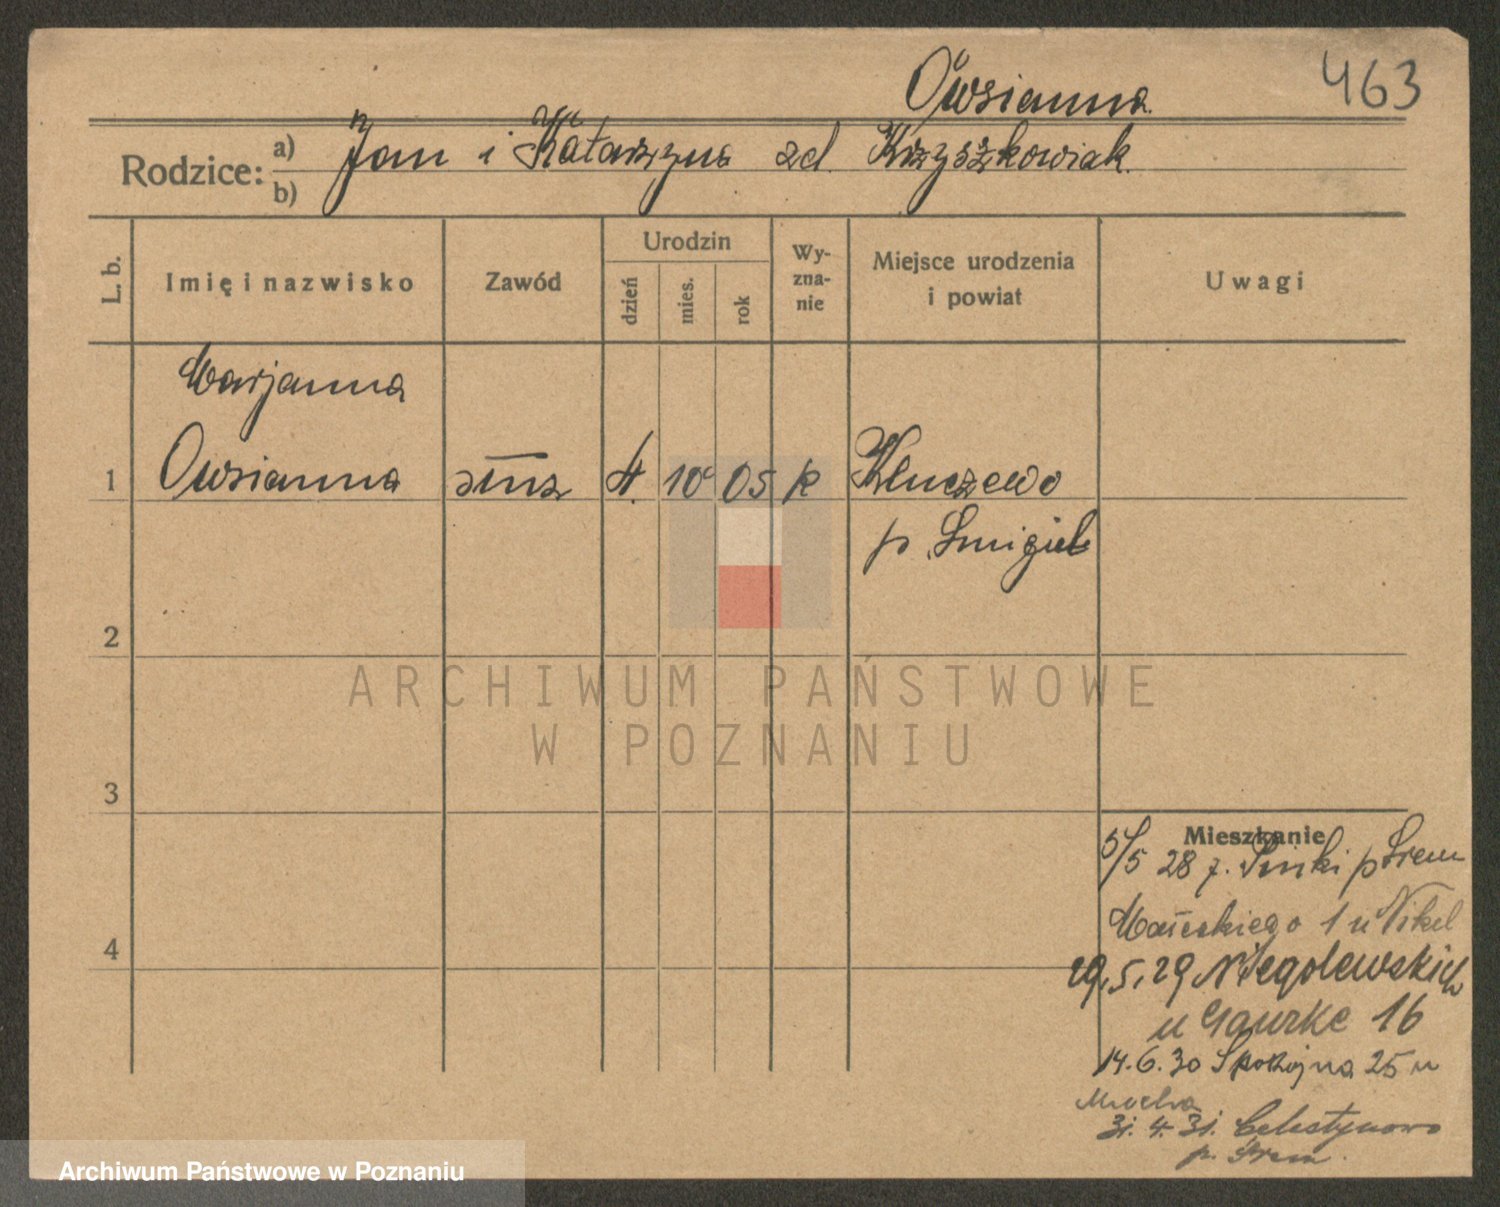 463
Owsianna
Rodzice: a) Jan i Katarzyna zd. Krzyszkowiak
b)
L. b. Imię i nazwisko Zawód Urodzin dzień mies. rok Wyznanie Miejsce urodzenia i powiat Uwagi
Marjanna
1 Owsianna służ 4. 10 05 k Kluczewo
p. Śmigiel
2
ARCHIWUM PAŃSTWOWE
W POZNANIU
3
Mieszkanie
5/5 28 z. p Śrem
1 u Nikel
29.5.29 Niegolewskich
u Gaurke 16
4
14.6.30 Spokojna 25 u
Mucha
31. 4. 31. Celestynowo
p. Śrem
Archiwum Państwowe w Poznaniu